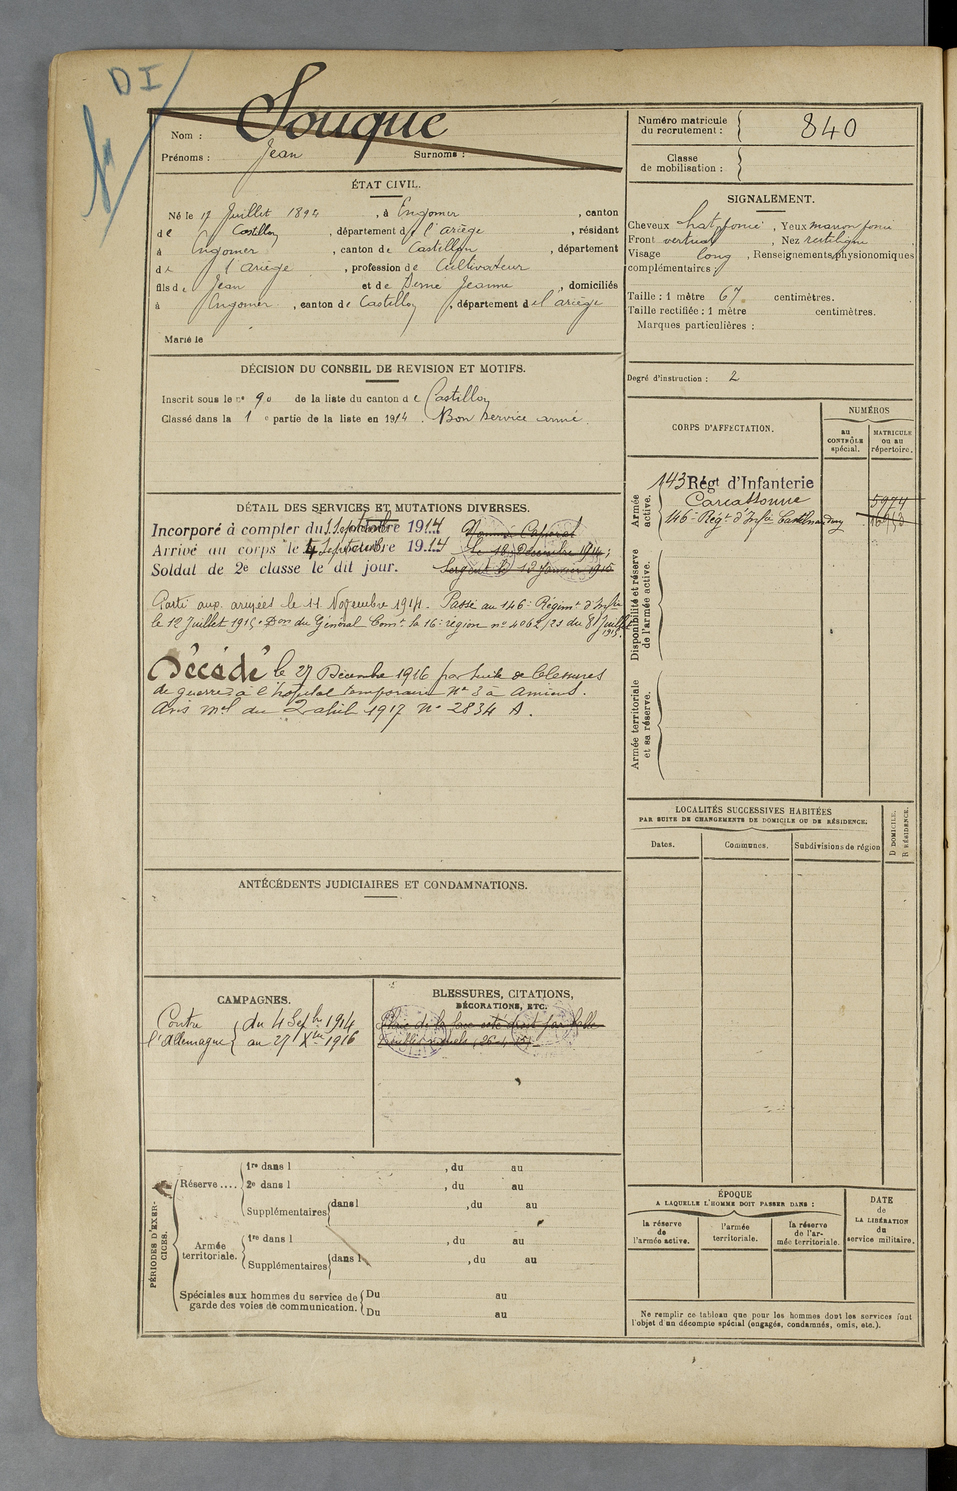 DI
Nom : Souque
Prénoms : Jean Surnoms :
Numéro matricule du recrutement : 840
Classe de mobilisation :
ÉTAT CIVIL.
Né le 17 Juillet 1894, à Engomer, canton
de Castillon, département de l'Ariège, résidant
à Engomer, canton de Castillon, département
de l'Ariège, profession de Cultivateur
fils de Jean et de Jeanne, domiciliés
à Engomer, canton de Castillon, département de l'ariège
Marié le
SIGNALEMENT.
Cheveux chat foncé, Yeux marron foncé
Front vertical, Nez rectiligne
Visage long, Renseignements physionomiques
complémentaires :
Taille : 1 mètre 67 centimètres.
Taille rectifiée : 1 mètre centimètres.
Marques particulières :
Degré d'instruction : 2
DÉCISION DU CONSEIL DE REVISION ET MOTIFS.
Inscrit sous le n° 90 de la liste du canton de Castillon
Classé dans la 1e partie de la liste en 1914. Bon service armé.
CORPS D'AFFECTATION.
NUMÉROS
au CONTRÔLE spécial.
MATRICULE ou au répertoire.
Armée active.
143 Régt d'Infanterie
Carcassonne 5974
146e Régt d'Infie
Disponibilité et réserve de l'armée active.
Armée territoriale et sa réserve.
DÉTAIL DES SERVICES ET MUTATIONS DIVERSES.
Incorporé à compter du 1 Septembre 1914 Nommé Caporal
Arrivé au corps le 4 Septembre 1914 le 10 Décembre 1914;
Soldat de 2e classe le dit jour. Sergent le 13 Janvier 1915
Parti aux armées le 11 Novembre 1914. Passé au 146e Régimt d'Infie
le 12 Juillet 1915. Don du Général Comt la 16e région n° 4062/21 du 8 Juillet 1915.
Décédé le 27 Décembre 1916 par suite de blessures
de guerre à l'hôpital temporaire N° 3 à Amiens.
Avis mel du 2 avril 1917 N° 2834 A.
LOCALITÉS SUCCESSIVES HABITÉES
PAR SUITE DE CHANGEMENTS DE DOMICILE OU DE RÉSIDENCE.
Dates. Communes. Subdivisions de région
D DOMICILE.
R RÉSIDENCE.
ANTÉCÉDENTS JUDICIAIRES ET CONDAMNATIONS.
CAMPAGNES.
Contre l'Allemagne
du 4 Septbre 1914
au 27 Xbre 1916
BLESSURES, CITATIONS,
DÉCORATIONS, ETC.
Plaie de la face coté droit par balle
PÉRIODES D'EXERCICES.
Réserve....
1re dans l , du au
2e dans l , du au
Supplémentaires dans l , du au
Armée territoriale.
1re dans l , du au
Supplémentaires dans l , du au
Spéciales aux hommes du service de garde des voies de communication.
Du au
Du au
ÉPOQUE
A LAQUELLE L'HOMME DOIT PASSER DANS :
la réserve de l'armée active.
l'armée territoriale.
la réserve de l'armée territoriale.
DATE de LA LIBÉRATION du service militaire.
Ne remplir ce tableau que pour les hommes dont les services font
l'objet d'un décompte spécial (engagés, condamnés, omis, etc.).